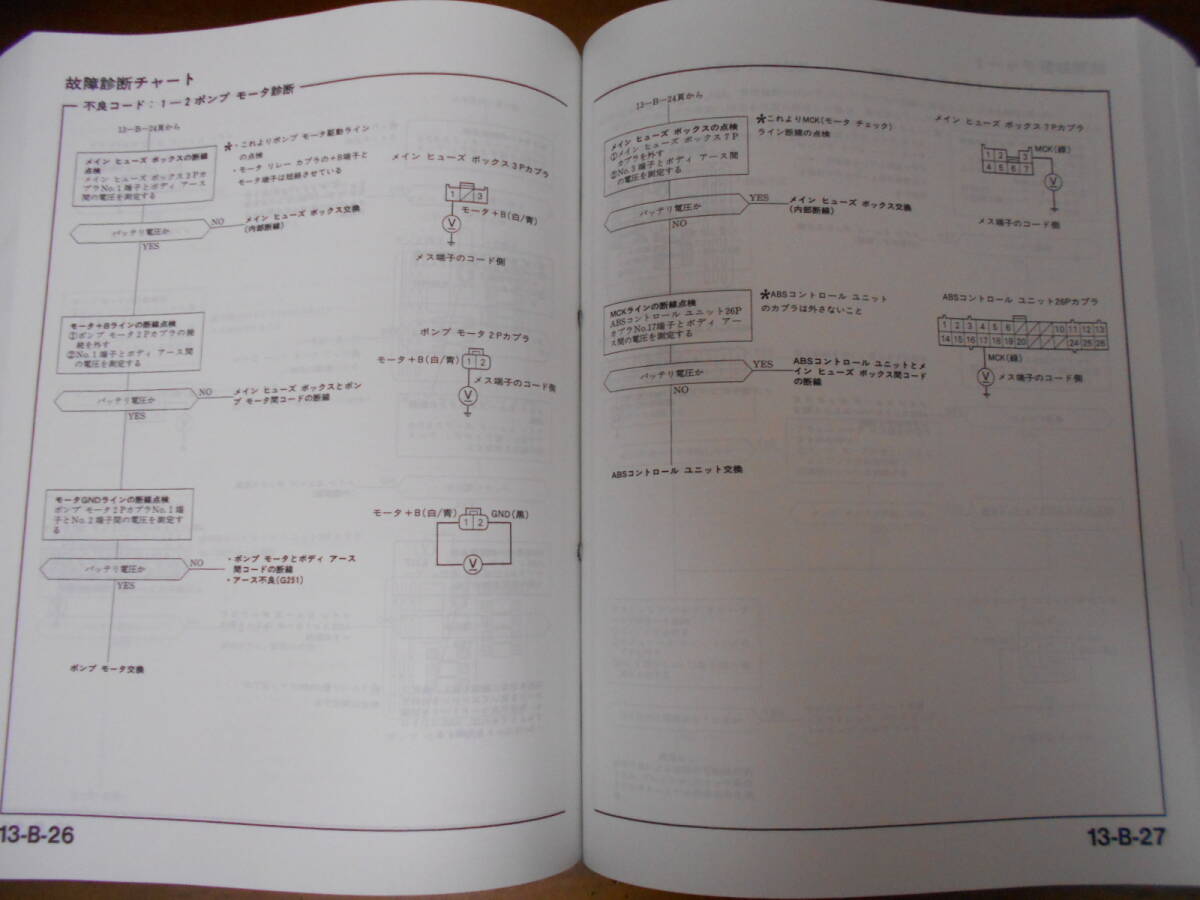 故障診断チャート
不良コード：1－2ポンプ モータ診断
13－B－24頁から
メイン ヒューズ ボックスの断線
点検
メイン ヒューズ ボックス3Pカ
プラNo.1端子とボディ アース
間の電圧を測定する
*・これよりポンプ モータ駆動ライン
の点検
・モータ リレー カプラの＋B端子と
モータ端子は短絡させている
バッテリ電圧か
NO
メイン ヒューズ ボックス交換
(内部断線)
YES
メイン ヒューズ ボックス3Pカプラ
1 3
モータ＋B(白/青)
V
メス端子のコード側
モータ＋Bラインの断線点検
①ポンプ モータ2Pカプラの接
続を外す
②No.1端子とボディ アース間
の電圧を測定する
バッテリ電圧か
NO
メイン ヒューズ ボックスとポン
プ モータ間コードの断線
YES
ポンプ モータ2Pカプラ
モータ＋B(白/青) 1 2
メス端子のコード側
V
モータGNDラインの断線点検
ポンプ モータ2PカプラNo.1端
子とNo.2端子間の電圧を測定す
る
バッテリ電圧か
NO
・ポンプ モータとボディ アース
間コードの断線
・アース不良(G251)
YES
モータ＋B(白/青) 1 2 GND(黒)
V
ポンプ モータ交換
13-B-26
13－B－24頁から
メイン ヒューズ ボックスの点検
①メイン ヒューズ ボックス7P
カプラを外す
②No.3端子とボディ アース間
の電圧を測定する
*これよりMCK(モータ チェック)
ライン断線の点検
バッテリ電圧か
YES
メイン ヒューズ ボックス交換
(内部断線)
NO
メイン ヒューズ ボックス7Pカプラ
1 2 3
4 5 6 7
MCK(緑)
V
メス端子のコード側
MCKラインの断線点検
ABSコントロール ユニット26P
カプラNo.17端子とボディ アー
ス間の電圧を測定する
*ABSコントロール ユニット
のカプラは外さないこと
バッテリ電圧か
YES
ABSコントロール ユニットとメ
イン ヒューズ ボックス間コード
の断線
NO
ABSコントロール ユニット26Pカプラ
1 2 3 4 5 6 10 11 12 13
14 15 16 17 18 19 20 24 25 26
MCK(緑)
V
メス端子のコード側
ABSコントロール ユニット交換
13-B-27